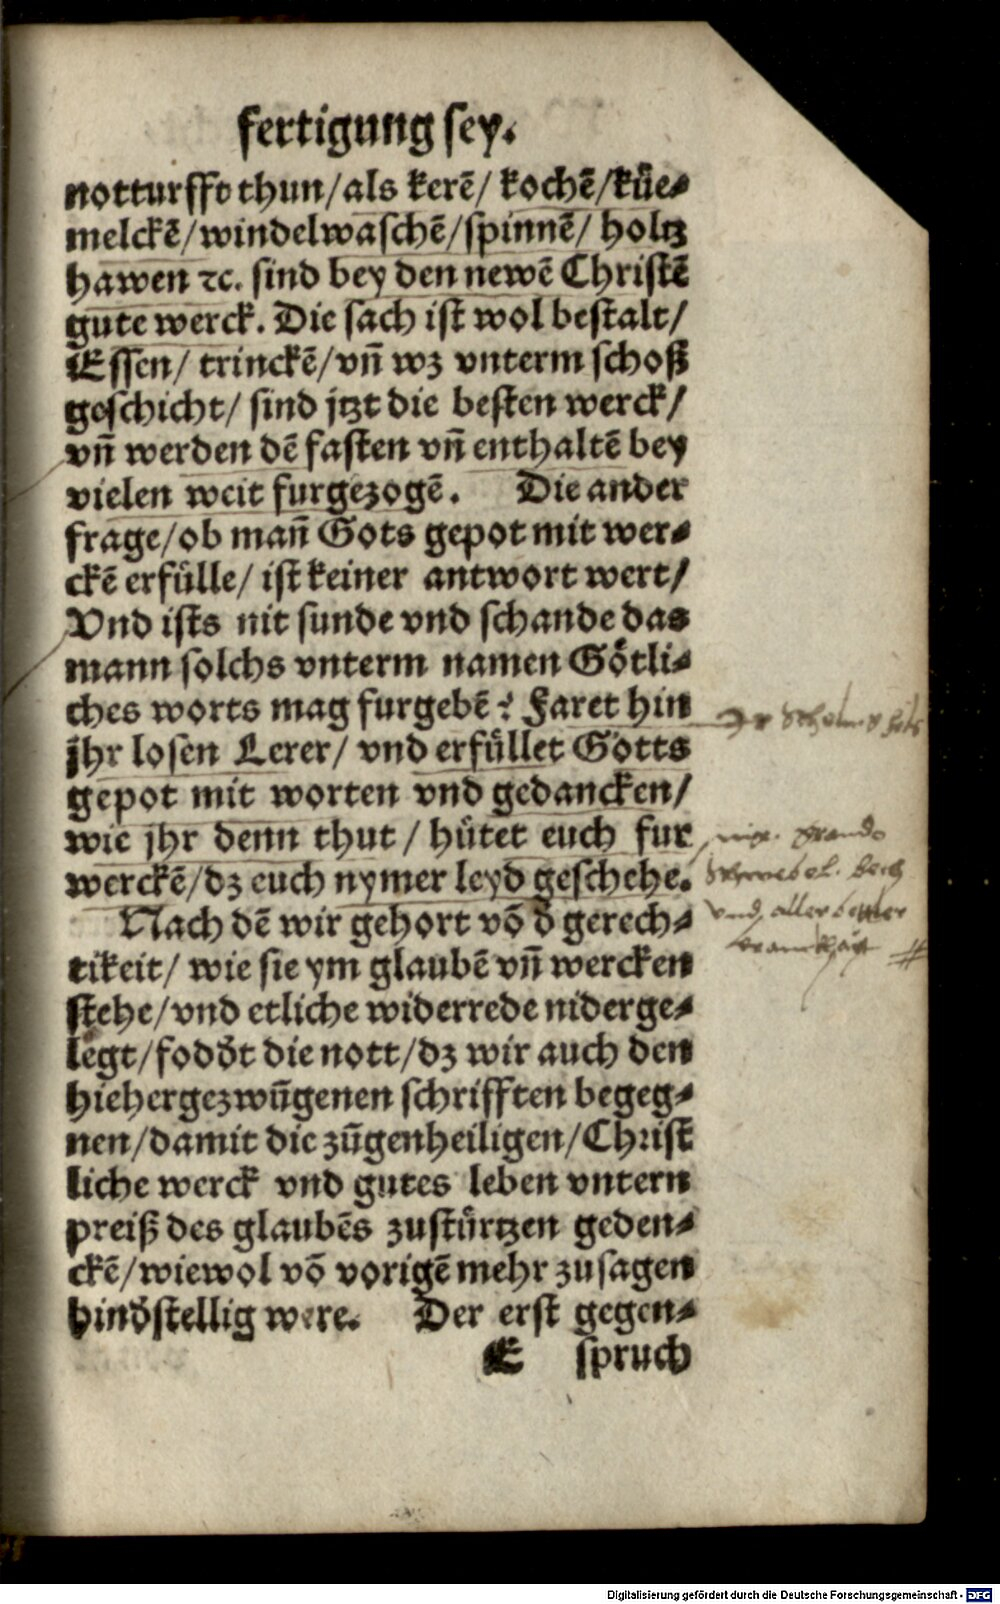 fertigung sey.
notturfft thun/als kerē/ kochē/küe⸗
melckē/windelwaschē/spinnē/ holtz
hawen ꝛc. sind bey den newē Christē
gute werck. Die sach ist wol bestalt/
Essen/ trinckē/vn̄ wz vnterm schoß
geschicht/ sind jtzt die besten werck/
vn̄ werden dē fasten vn̄ enthaltē bey
vielen weit furgezogē. Die ander
frage/ob man̄ Gots gepot mit wer⸗
ckē erfülle/ ist keiner antwort wert/
Vnd ists nit sunde vnd schande das
mann solchs vnterm namen Götli⸗
ches worts mag furgebē? Faret hin
jhr losen Lerer/ vnd erfüllet Gotts
gepot mit worten vnd gedancken/
wie jhr denn thut/ hütet euch fur
werckē/dz euch nymer leyd geschehe.
Nach dē wir gehort vō d̄ gerech⸗
tikeit/ wie sie ym glaubē vn̄ wercken
stehe/vnd etliche widerrede niderge⸗
legt/fodd̄t die nott/dz wir auch den
hiehergezwūgenen schrifften begeg⸗
nen/damit die zūgenheiligen/Christ
liche werck vnd gutes leben vntern
preiß des glaubēs zustürtzen geden⸗
ckē/wiewol vō vorigē mehr zusagen
hind̄stellig were. Der erst gegen⸗
E spruch
vnd aller
Digitalisierung gefördert durch die Deutsche Forschungsgemeinschaft - DFG